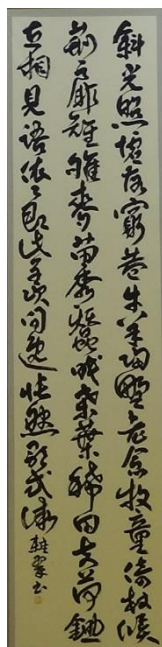 斜光照墟落窮巷牛羊歸野老念牧童倚杖候
荊扉雉雊麥苗秀蠶眠桑葉稀田夫荷鋤
至相見語依々即此羨閒逸悵然歌式微 翠書